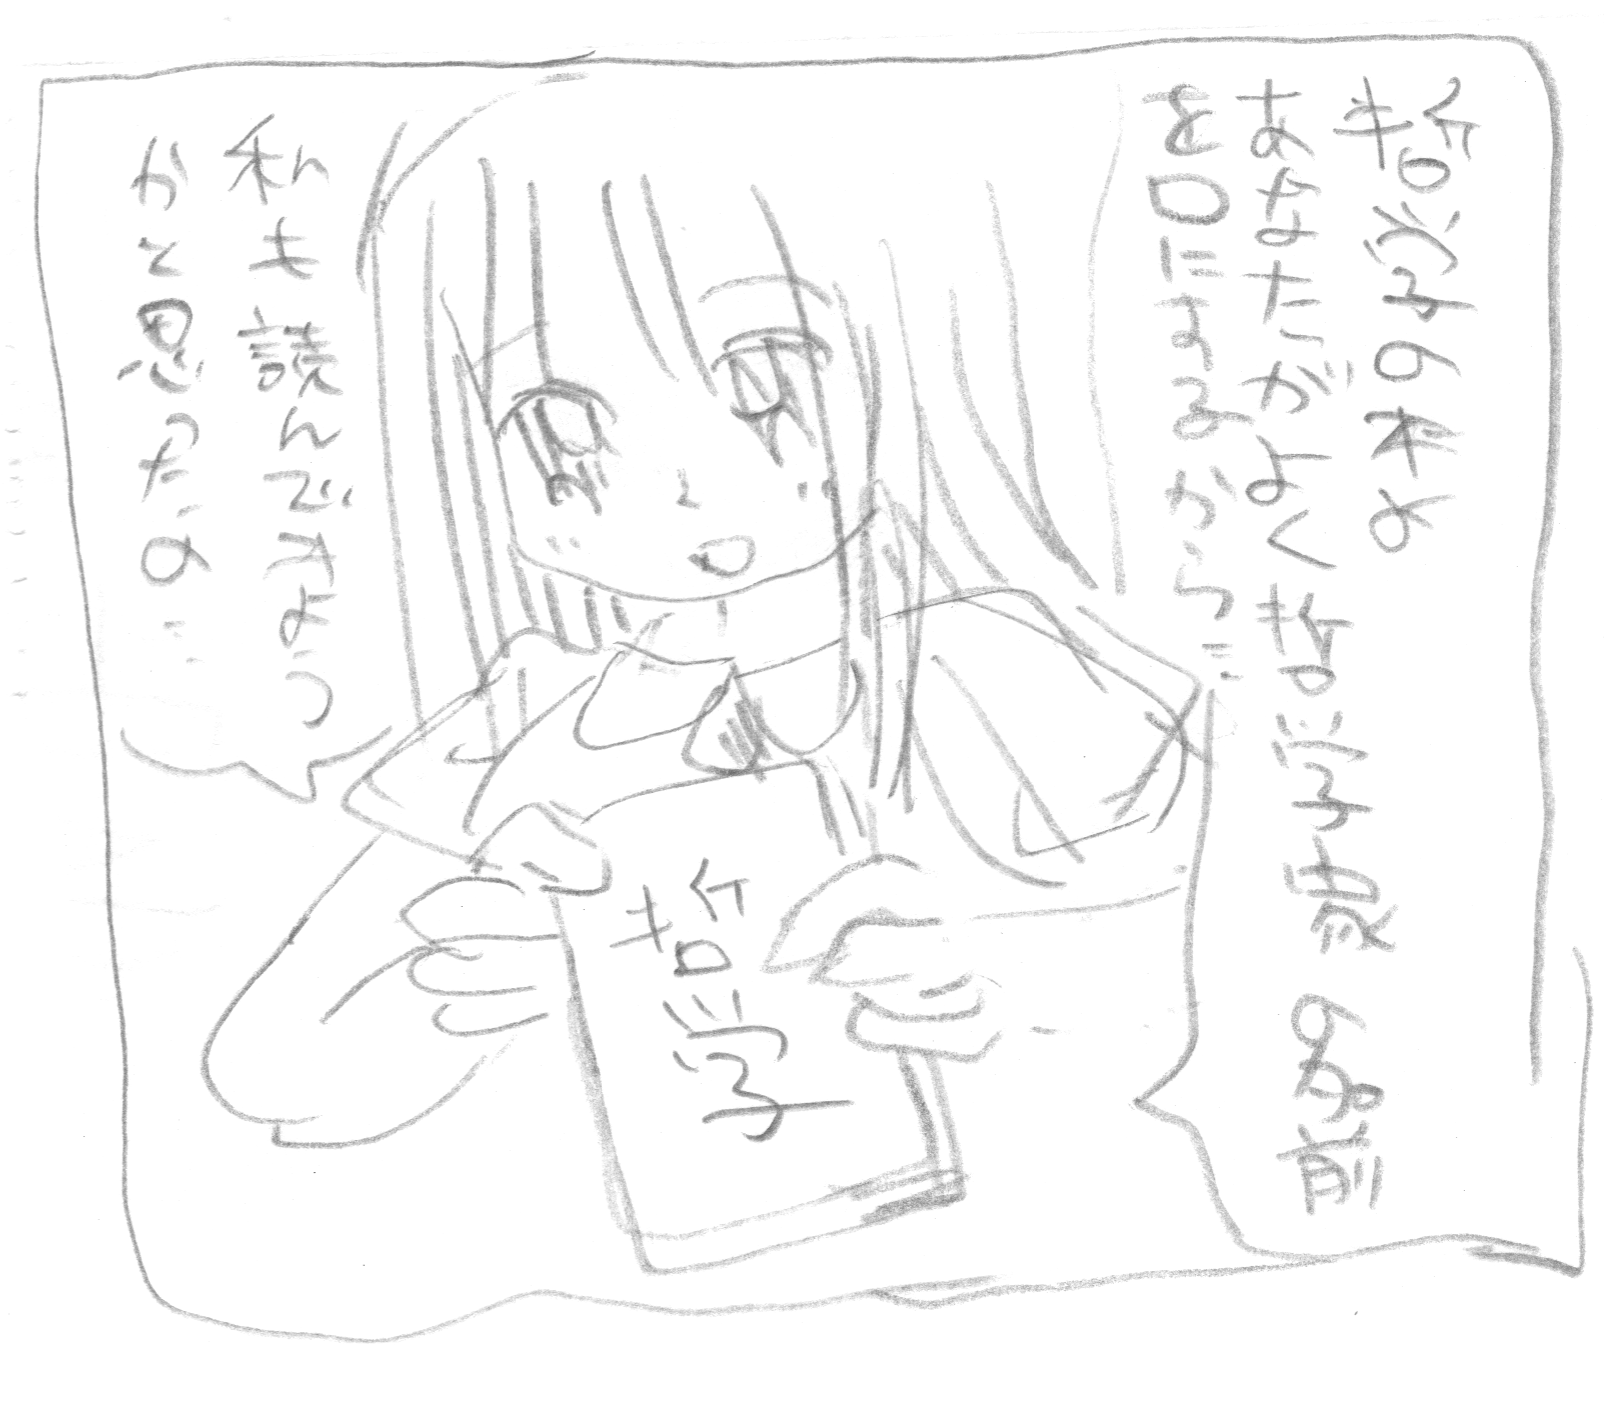 哲学の本よ
あなたがよく哲学家の名前
を口にするから…
私も読んでみよっ
かと思ったの…
哲学